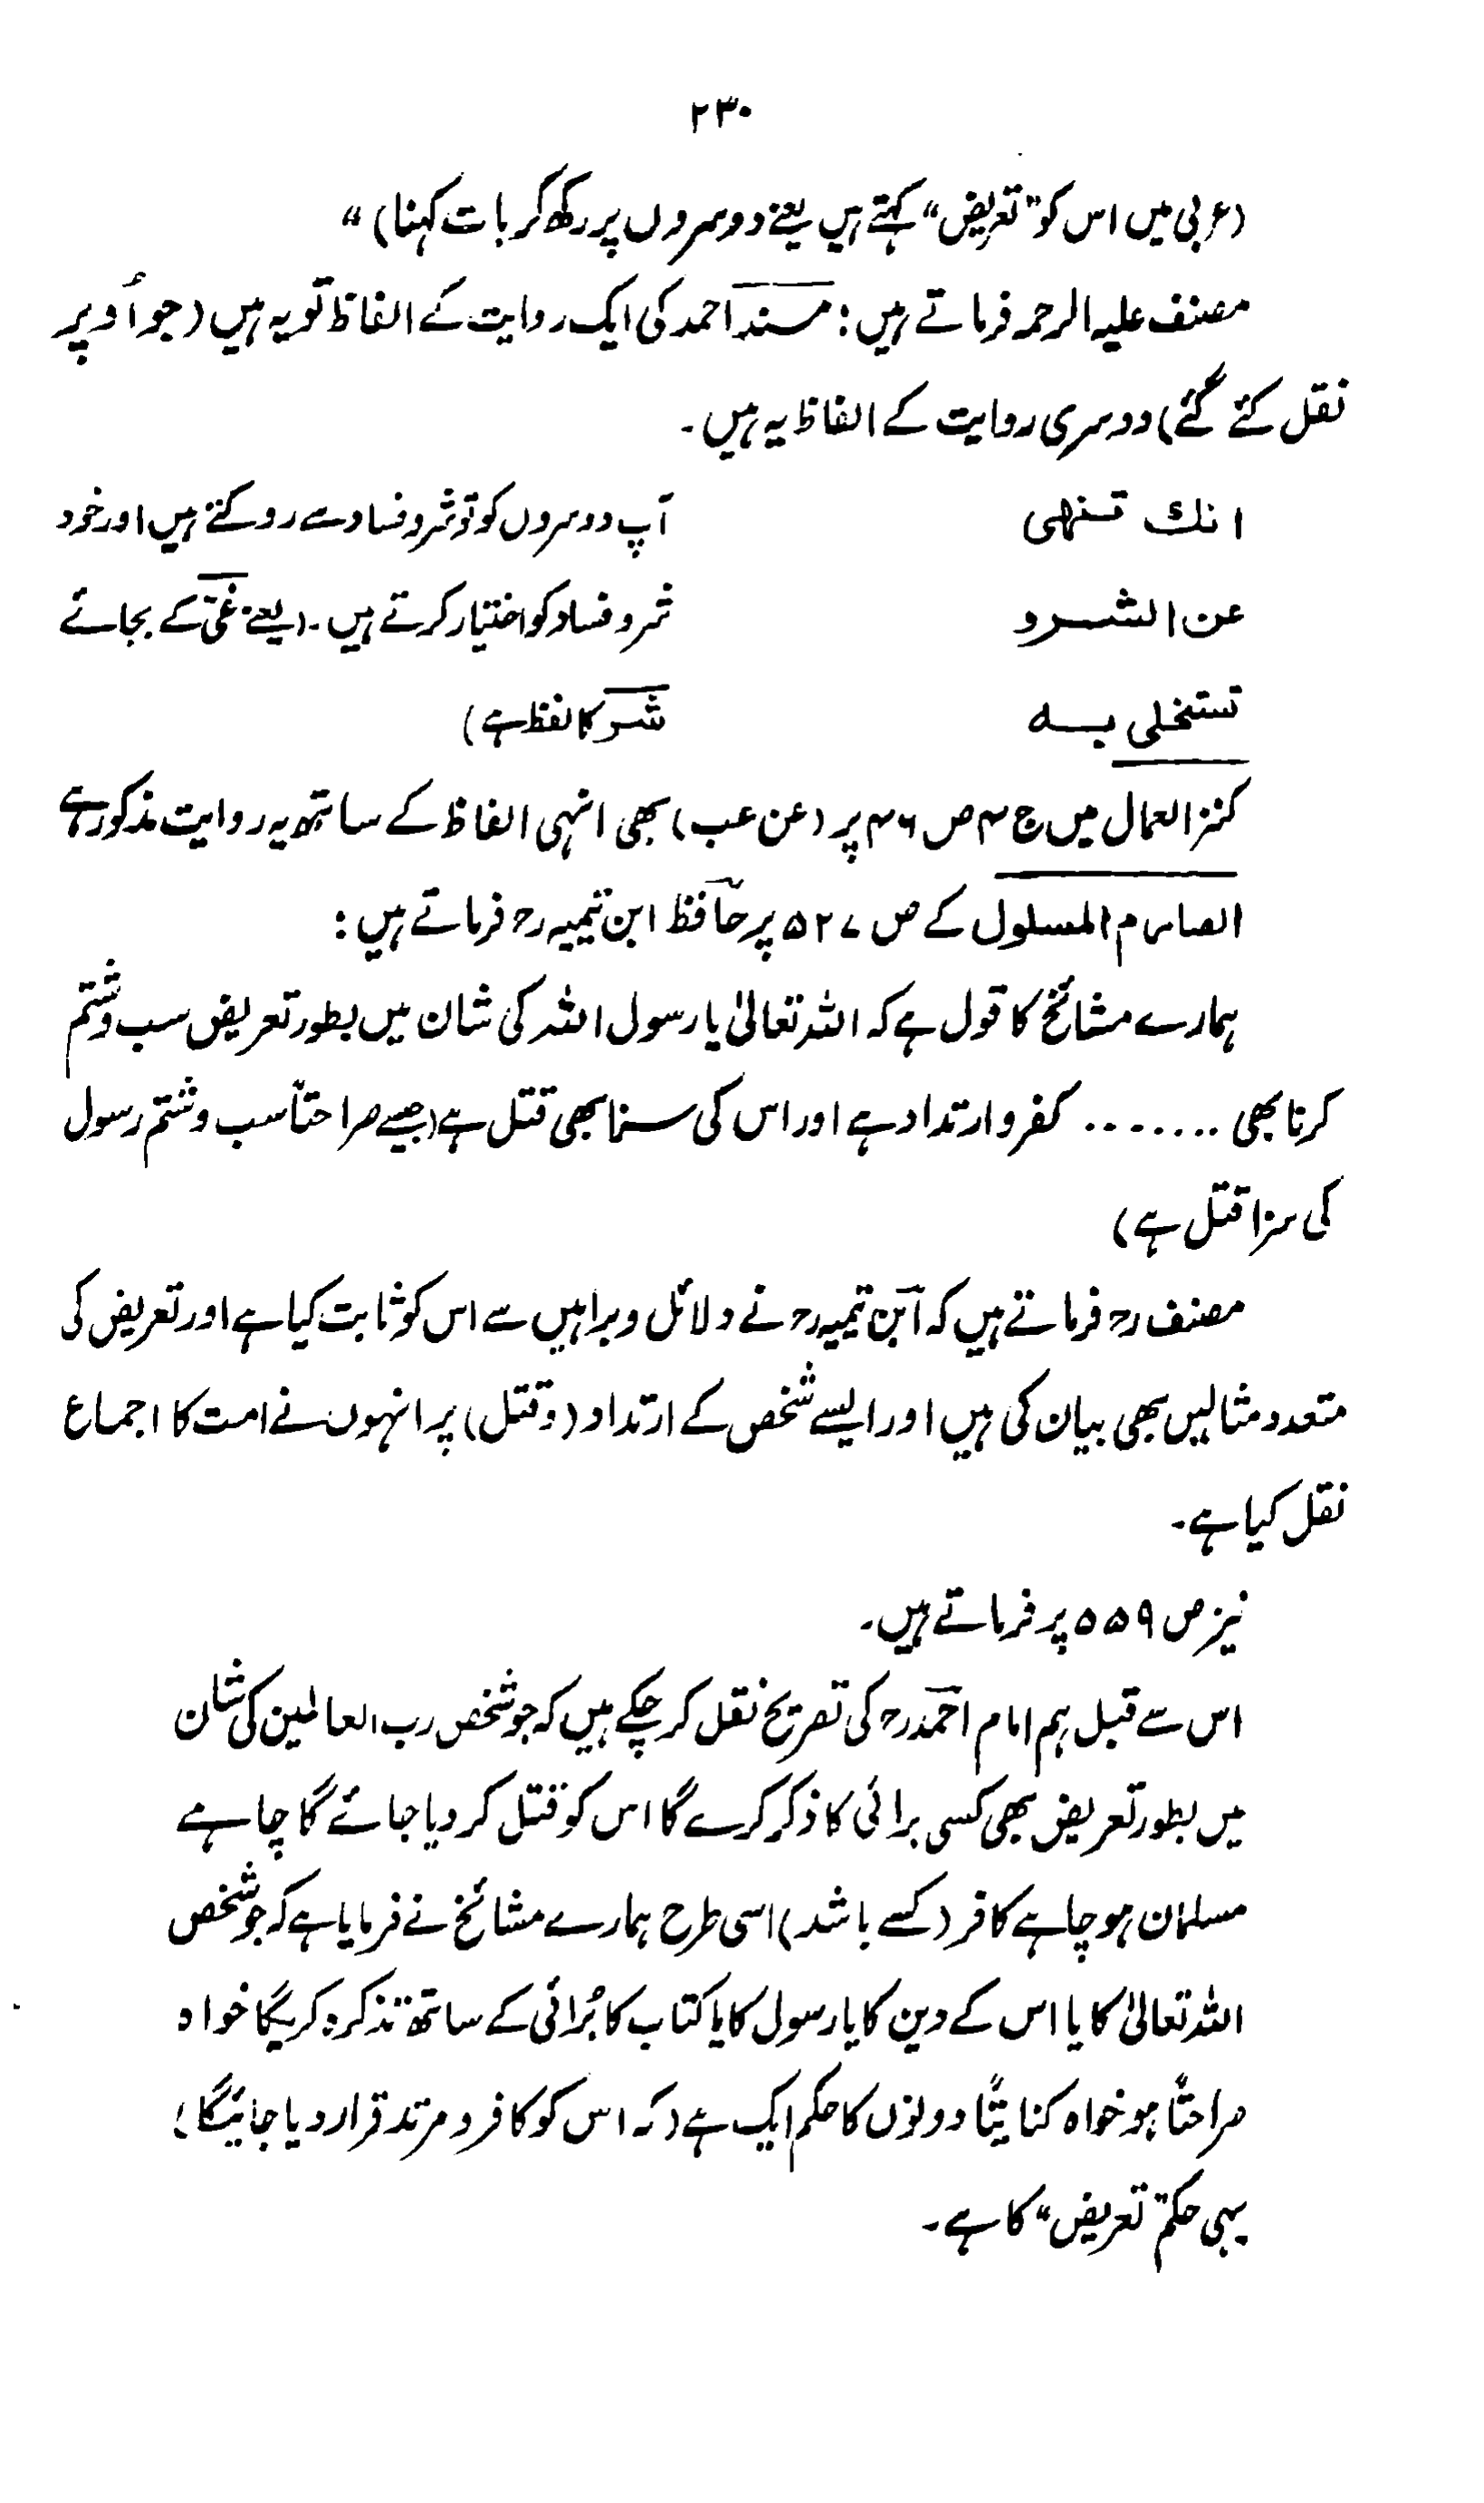 ۲۳۰
(عربی میں اس کو "تعریض" کہتے ہیں یعنے دوسروں پر رکھ کر بات کہنا) "
مصنف علیہ الرحمہ فرماتے ہیں : مسند احمد کی ایک روایت کے الفاظ تو یہ ہیں (جو اُوپر
نقل کئے گئے) دوسری روایت کے الفاظ یہ ہیں۔
انك تنهى آپ دوسروں کو تو شر و فساد سے روکتے ہیں اور خود
عن الشر و شر و فساد کو اختیار کرتے ہیں۔ (یعنے غَیّ کے بجائے
تستخلى به شر کا لفظ ہے)
کنز العمال میں ج ۴ ص ۴۶ پر (عن عب) بھی انہی الفاظ کے ساتھ یہ روایت مذکور ہے
الصارم المسلول کے ص ۵۲۷ پر حافظ ابن تیمیہ رح فرماتے ہیں :
ہمارے مشائخ کا قول ہے کہ اللہ تعالیٰ یا رسول اللہ کی شان میں بطور تعریض سب و شتم
کرنا بھی ....... کفر و ارتداد ہے اور اس کی سزا بھی قتل ہے (جیسے صراحتاً سب و شتم رسول
کی سزا قتل ہے)
مصنف رح فرماتے ہیں کہ ابن تیمیہ رح نے دلائل و براہیں سے اس کو ثابت کیا ہے اور تعریض کی
متعدد مثالیں بھی بیان کی ہیں اور ایسے شخص کے ارتداد (و قتل) پر انہوں نے امت کا اجماع
نقل کیا ہے۔
نیز ص ۵۵۹ پر فرماتے ہیں۔
اس سے قبل ہم امام احمد رح کی تصریح نقل کر چکے ہیں کہ جو شخص رب العالمین کی شان
میں بطور تعریض بھی کسی برائی کا ذکر کرے گا اس کو قتل کر دیا جائے گا چاہے
مسلمان ہو چاہے کافر (کسے باشد) اسی طرح ہمارے مشائخ نے فرمایا ہے کہ جو شخص
اللہ تعالیٰ کا یا اس کے دین کا یا رسول کا یا کتاب کا بُرائی کے ساتھ تذکرہ کریگا خواہ
صراحتاً ہو خواہ کنایتاً دونوں کا حکم ایک ہے (کہ اس کو کافر و مرتد قرار دیا جائیگا)
یہی حکم "تعریض" کا ہے۔